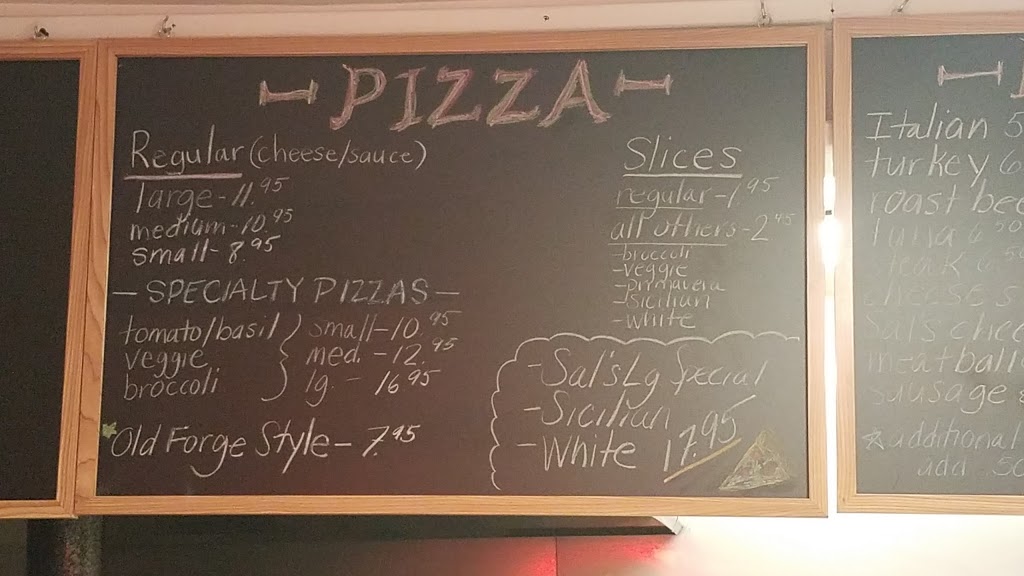 PIZZA
Regular (cheese/sauce)
large - 11.95
medium - 10.95
small - 8.95
- SPECIALTY PIZZAS -
tomato/basil
veggie
broccoli
small - 10.95
med. - 12.95
lg - 16.95
Old Forge Style - 7.95
Slices
regular - 1.95
all others - 2.45
- broccoli
- veggie
- primavera
- sicilian
- white
- Sal's Lg Special
- Sicilian
- White 17.95
Italian 5
turkey 6
roast
meatball
sausage
additional
add .50